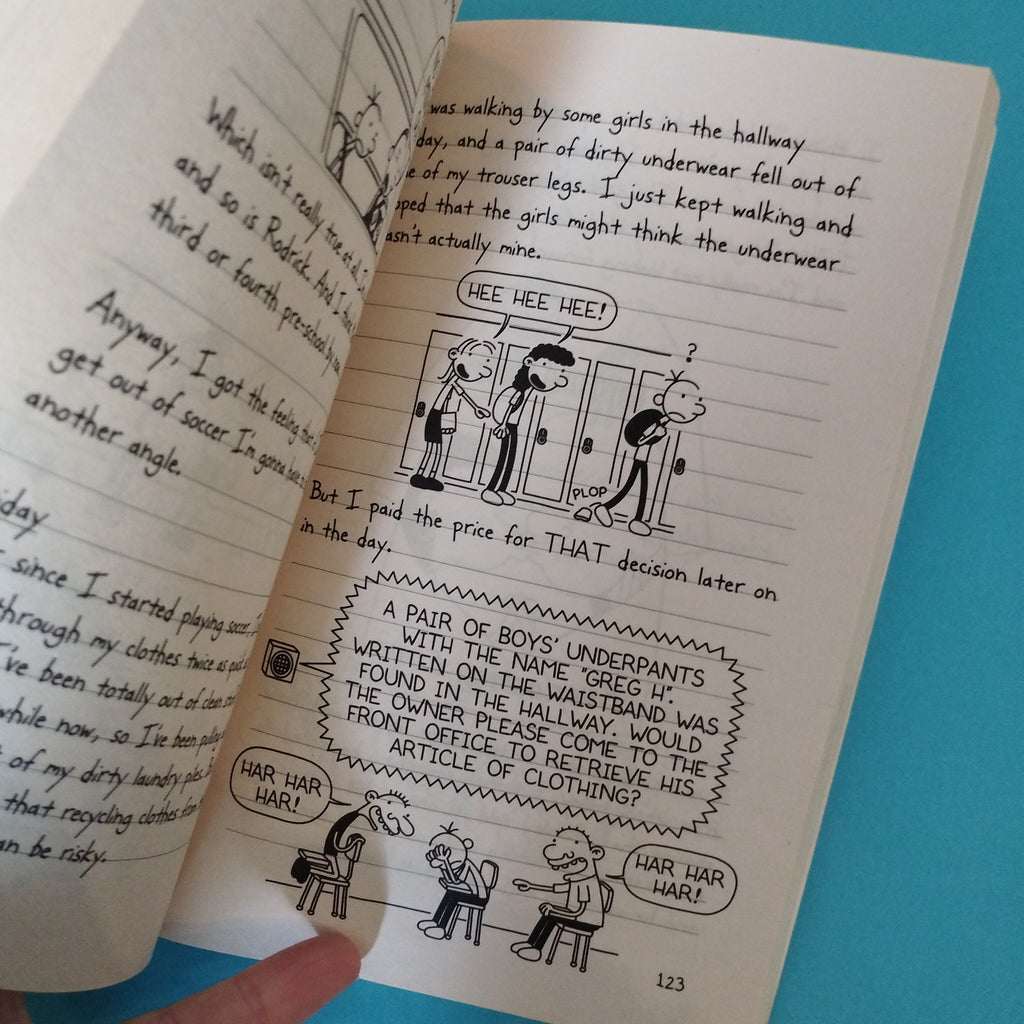 Which isn't really true at all.
and so is Rodrick. And I think
third or fourth pre-school
Anyway, I got the feeling
get out of soccer I'm gonna have to
another angle.
since I started playing soccer,
through my clothes twice as
I've been totally out of clean
while now, so I've been
of my dirty laundry
that recycling clothes
be risky.
was walking by some girls in the hallway
day, and a pair of dirty underwear fell out of
of my trouser legs. I just kept walking and
that the girls might think the underwear
actually mine.
HEE HEE HEE!
?
PLOP
But I paid the price for THAT decision later on
in the day.
A PAIR OF BOYS' UNDERPANTS
WITH THE NAME "GREG H".
WRITTEN ON THE WAISTBAND WAS
FOUND IN THE HALLWAY. WOULD
THE OWNER PLEASE COME TO THE
FRONT OFFICE TO RETRIEVE HIS
ARTICLE OF CLOTHING?
HAR HAR
HAR!
HAR HAR
HAR!
123